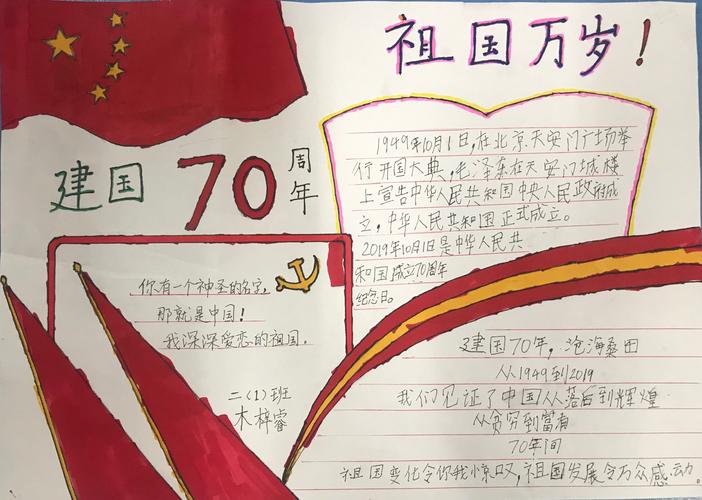 祖国万岁！
建国70周年
1949年10月1日，在北京天安门广场举
行开国大典，毛泽东在天安门城楼
上宣告中华人民共和国中央人民政府成
立，中华人民共和国正式成立。
2019年10月1日是中华人民共
和国成立70周年
纪念日。
你有一个神圣的名字，
那就是中国！
我深深爱恋的祖国。
二（1）班
木梓睿
建国70年，沧海桑田
从1949到2019
我们见证了中国从落后到辉煌
从贫穷到富有
70年间
祖国变化令你我惊叹，祖国发展令万众感动。